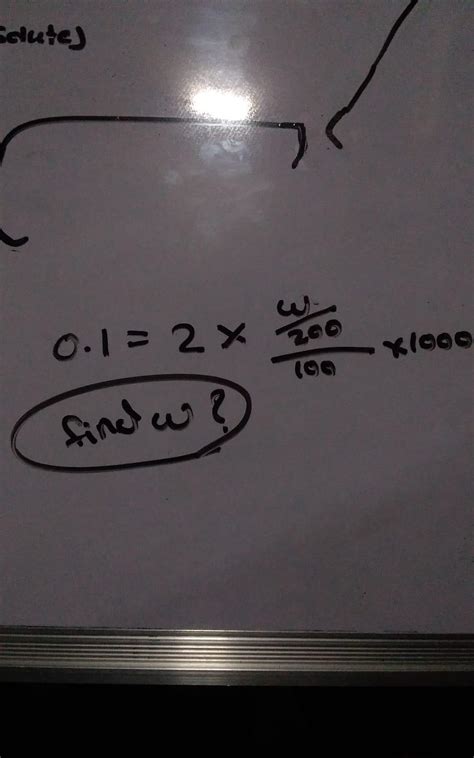 Solute)
0.1 = 2 × w/200/100 ×1000
find w?